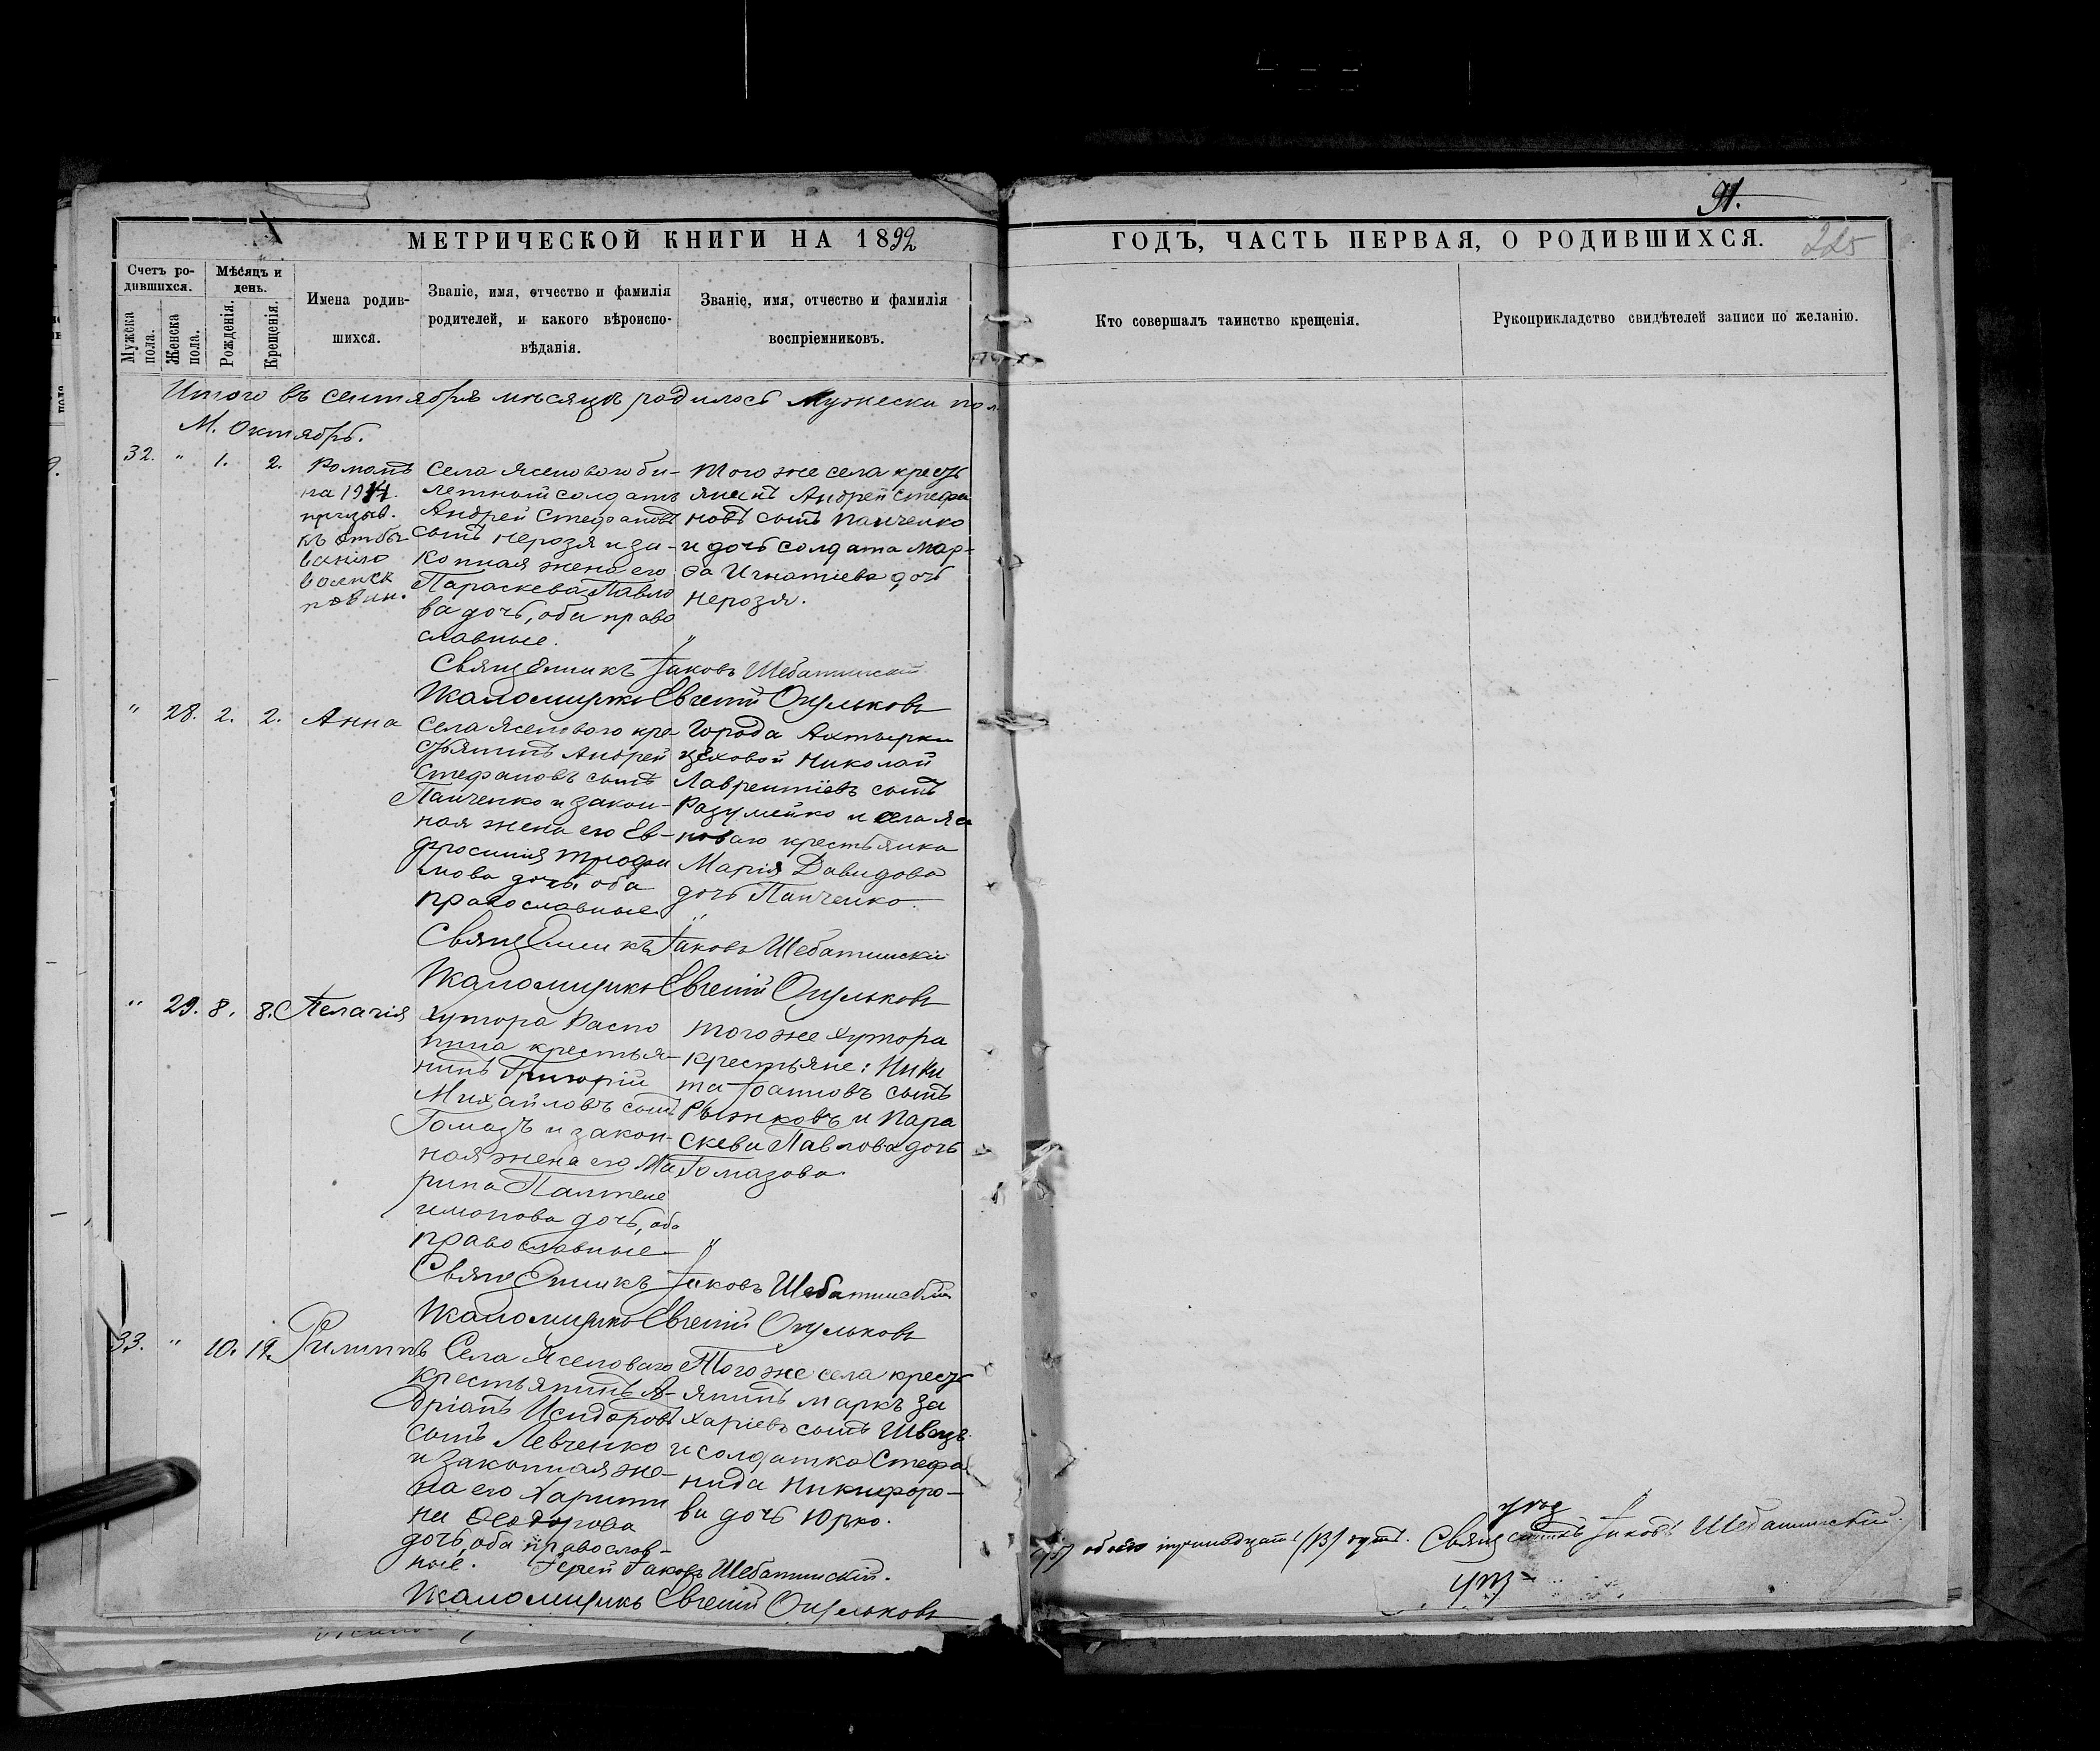 91.
225
МЕТРИЧЕСКОЙ КНИГИ НА 1892
ГОДЪ, ЧАСТЬ ПЕРВАЯ, О РОДИВШИХСЯ.
Счетъ ро-
дившихся.
Мѣсяцъ и
день.
Мужеска
пола.
Женска
пола.
Рожденія.
Крещенія.
Имена родив-
шихся.
Званіе, имя, отчество и фамилія
родителей, и какого вѣроиспо-
вѣданія.
Званіе, имя, отчество и фамилія
воспріемниковъ.
Кто совершалъ таинство крещенія.
Рукоприкладство свидѣтелей записи по желанію.
Итого въ сентябрѣ мѣсяцѣ родилось мужеска пол
М. Октябрь.
32. " 1. 2.
Романъ
на 1914.
призыв.
къ отбы
ванію
воинск
повин.
Села Ясеноваго би-
летный солдатъ
Андрей Стефановъ
сынъ Нерозя и за-
конная жена его
Параскева Павло
ва дочь, оба право
славные.
Того же села крест
янинъ Андрей Стефа
новъ сынъ Панченко
и дочь солдата Мар-
ѳа Игнатіева дочь
Нерозя.
"
Священникъ Іаковъ Шебатинскій
Псаломщикъ Евгеній
" 28. 2. 2. Анна
Села Ясеноваго кре-
стьянинъ Андрей
Стефановъ сынъ
Панченко и закон-
ная жена его Ев-
фросинія Трофи
мова дочь, оба
православные
Города Ахтырки
цеховой Николай
Лаврентіевъ сынъ
Разумейко и села Яс
новаго крестьянка
Марія Давидова
дочь Панченко.
"
Священникъ Іаковъ Шебатинскій
Псаломщикъ Евгеній
" 29. 8. 8. Пелагія
Хутора Распо
пина крестья-
нинъ Григорій
Михайловъ сынъ
Гомазъ и закон-
ная жена его Ма
рина Пантеле
имонова дочь, оба
православные
того же хутора
крестьяне: Ники
та Іоанновъ сынъ
Рыжковъ и Пара
скева Павлова дочь
Гомазова
"
Священникъ Іаковъ Шебатинскій
Псаломщикъ Евгеній
33. " 10. 11. Филиппъ
Села Ясеноваго
крестьянинъ А-
дріанъ Исидоровъ
сынъ Левченко
и законная же-
на его Харити
на Ѳеодорова
дочь, оба православ-
ные.
Того же села крест
янинъ Маркъ За
харіевъ сынъ Швецъ
и солдатка Стефа
нида Никифоро-
ва дочь Юрко.
Іерей Іаковъ Шебатинскій.
Псаломщикъ Евгеній
обоего тринадцать (13) душъ. Священникъ Іаковъ Шебатинскій.